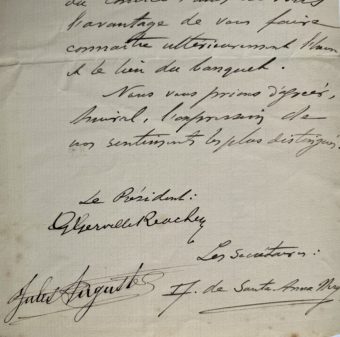 l'avantage de vous faire
connaître ultérieurement l'heure
et le lieu du banquet.
Nous vous prions d'agréer,
Amiral, l'expression de
nos sentiments les plus distingués.
Le Président:
Gerville Réache
Les Secrétaires:
Jules Auguste
H. de Santa Anna Nery